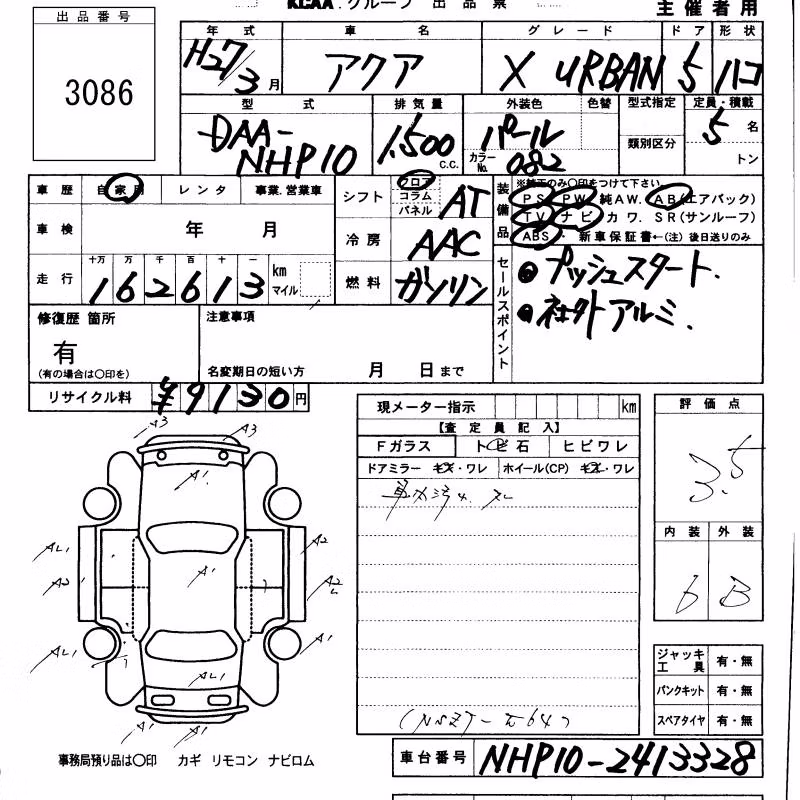 KCAA.グループ 出品票
主催者用
出品番号
3086
年式 車名 グレード ドア 形状
H27/3月 アクア X URBAN 5 ハコ
型式 排気量 外装色 色替 型式指定 定員・積載
DAA-NHP10 1,500 c.c. パール カラーNo. 082 類別区分 5名 トン
車歴 自家用 レンタ 事業.営業車
車検 年 月
走行 十万 万 千 百 十 一
162613 km マイル
シフト フロア コラム パネル AT
冷房 AAC
燃料 ガソリン
装備品 ※純正のみ○印をつけて下さい
PS PW 純AW. AB(エアバック)
TV ナビ カワ. SR(サンルーフ)
ABS・ 新車保証書←(注) 後日送りのみ
セールスポイント
●プッシュスタート.
●社外アルミ.
修復歴 箇所
有
(有の場合は○印を)
注意事項
名変期日の短い方 月 日まで
リサイクル料 ¥9130円
現メーター指示 km
【査定員記入】
Fガラス トビ石 ヒビワレ
ドアミラー キズ・ワレ ホイール(CP) キズ・ワレ
評価点
3.5
内装 外装
6 B
A3 A3
A1
AL1 A2
A2 A1 A2
AL1 A1
AL1
A1 A1
ジャッキ工具 有・無
パンクキット 有・無
スペアタイヤ 有・無
事務局預り品は○印 カギ リモコン ナビロム
車台番号 NHP10-2413328